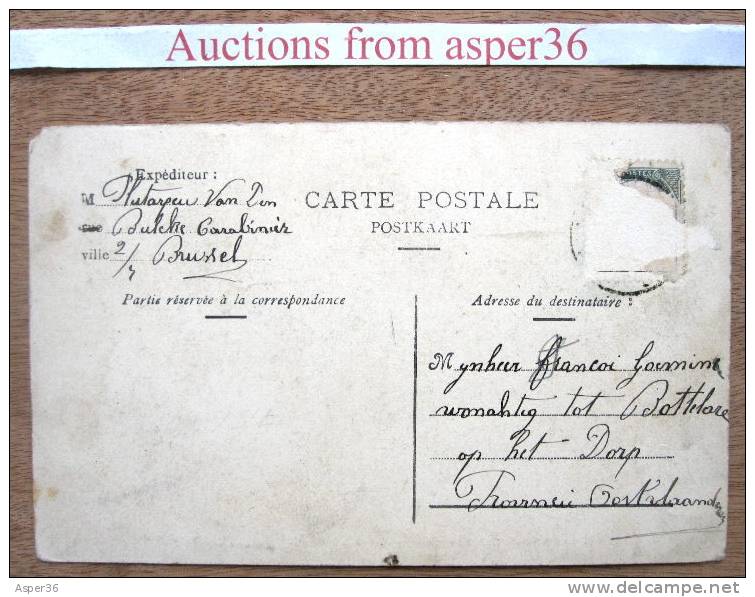 Auctions from asper36
Expéditeur :
M Plutarpeu Van Den
rue Bulcke Carabinier
ville 2/7 Brussel
CARTE POSTALE
POSTKAART
Partie réservée à la correspondance
Adresse du destinataire :
Mynheer francoi Goeminne
wonahtig tot Bottelare
op het Dorp
Oostvlaanderen
Asper36
delcampe.net